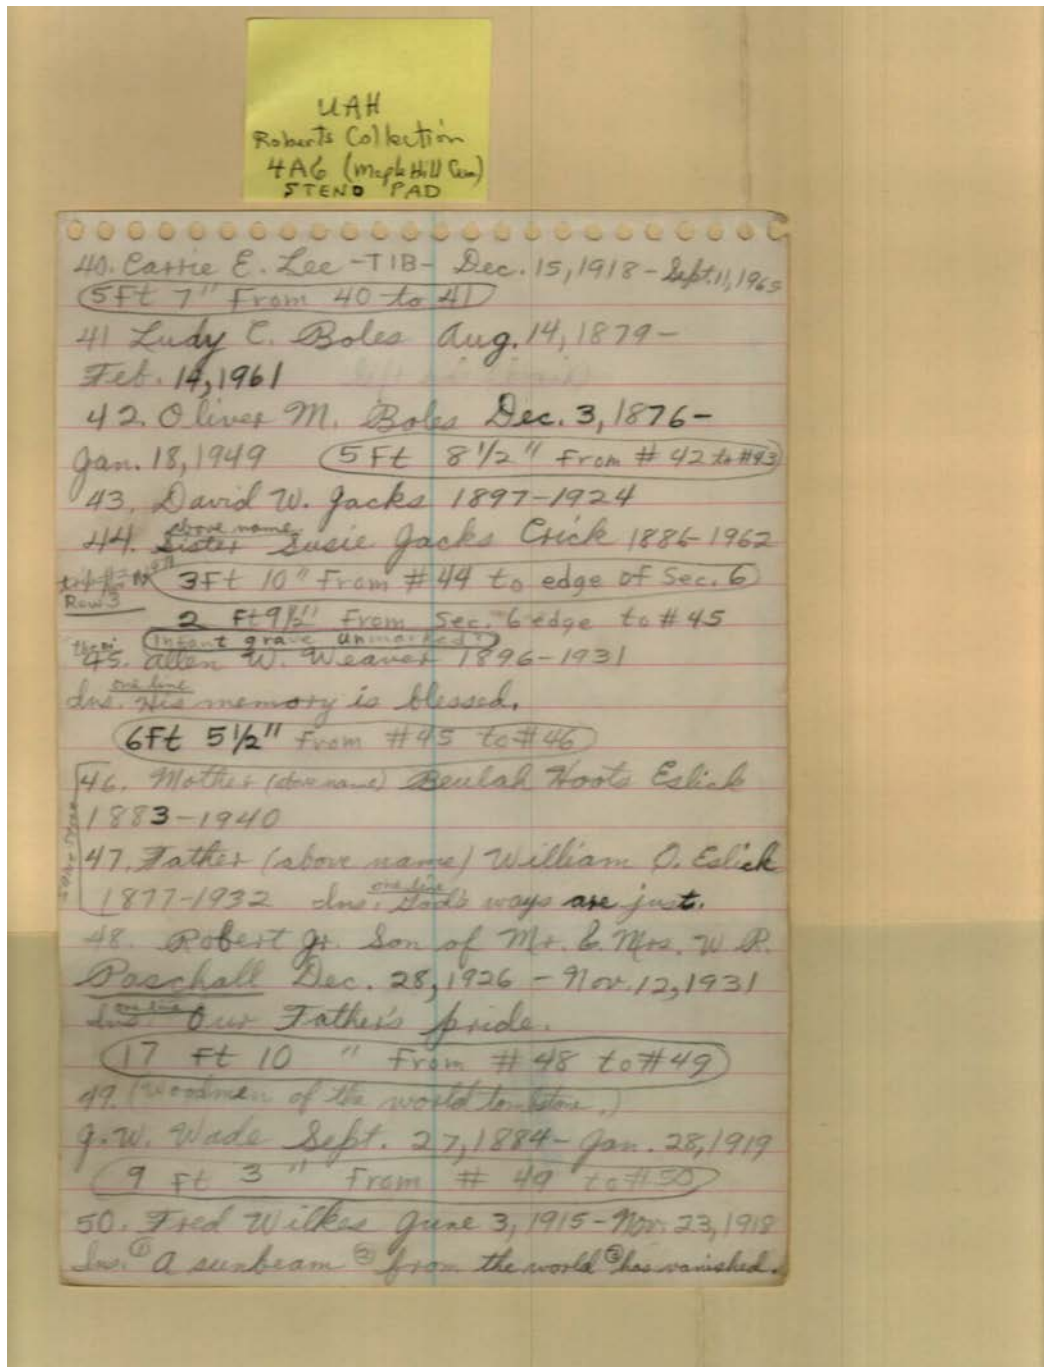 UAH
Roberts Collection
4A6 (Maple Hill Cem)
STENO PAD
40. Carrie E. Lee -TIB- Dec. 15, 1918 - Sept. 11, 1965
5Ft 7" From 40 to 41
41 Ludy C. Boles Aug. 14, 1879-
Feb. 14, 1961
42. Oliver M. Boles Dec. 3, 1876-
Jan. 18, 1949 5 Ft 8 1/2" From # 42 to #43
43. David W. Jacks 1897-1924
above name
44. Sister Susie Jacks Crick 1886-1962
3Ft 10" From # 44 to edge of Sec. 6
Row 3
2 Ft 9 1/2" From Sec. 6 edge to #45
(Infant grave unmarked?)
45. Allen W. Weaver 1896-1931
one line
Ins. His memory is blessed.
6Ft 5 1/2" From #45 to #46
46. Mother (above name) Beulah Hoots Eslick
1883-1940
47. Father (above name) William O. Eslick
one line
1877-1932 Ins. God's ways are just.
48. Robert Jr. Son of Mr. & Mrs. W R.
Paschall Dec. 28, 1926 - Nov. 12, 1931
one line
Ins. Our Father's pride.
17 Ft 10 " From # 48 to #49
49. (Woodmen of the world tombstone.)
G. W. Wade Sept. 27, 1884- Jan. 28, 1919
9 Ft 3" From # 49 to #50
50. Fred Wilkes June 3, 1915-Nov. 23, 1918
Ins. ① A sunbeam ② from the world ③ has vanished.